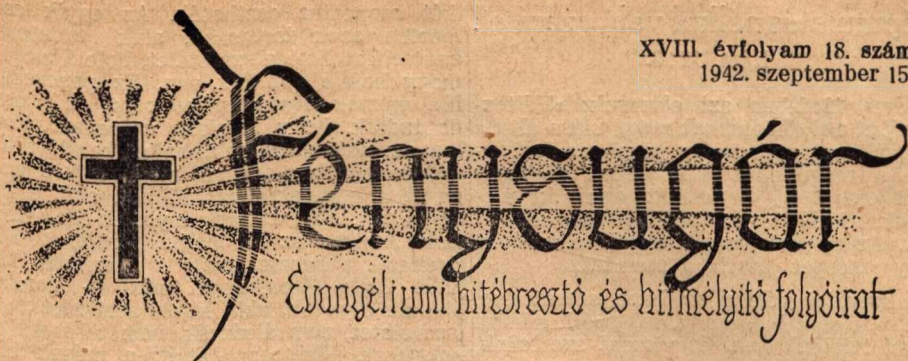 XVIII. évfolyam 18. szám
1942. szeptember 15
Fénysugár
Evangéliumi hitébresztő és hitmélyítő folyóirat